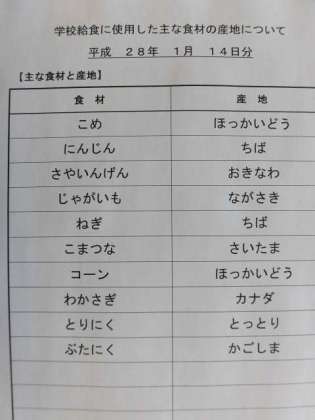 学校給食に使用した主な食材の産地について
平成 28年 1月 14日分
【主な食材と産地】
食材 産地
こめ ほっかいどう
にんじん ちば
さやいんげん おきなわ
じゃがいも ながさき
ねぎ ちば
こまつな さいたま
コーン ほっかいどう
わかさぎ カナダ
とりにく とっとり
ぶたにく かごしま